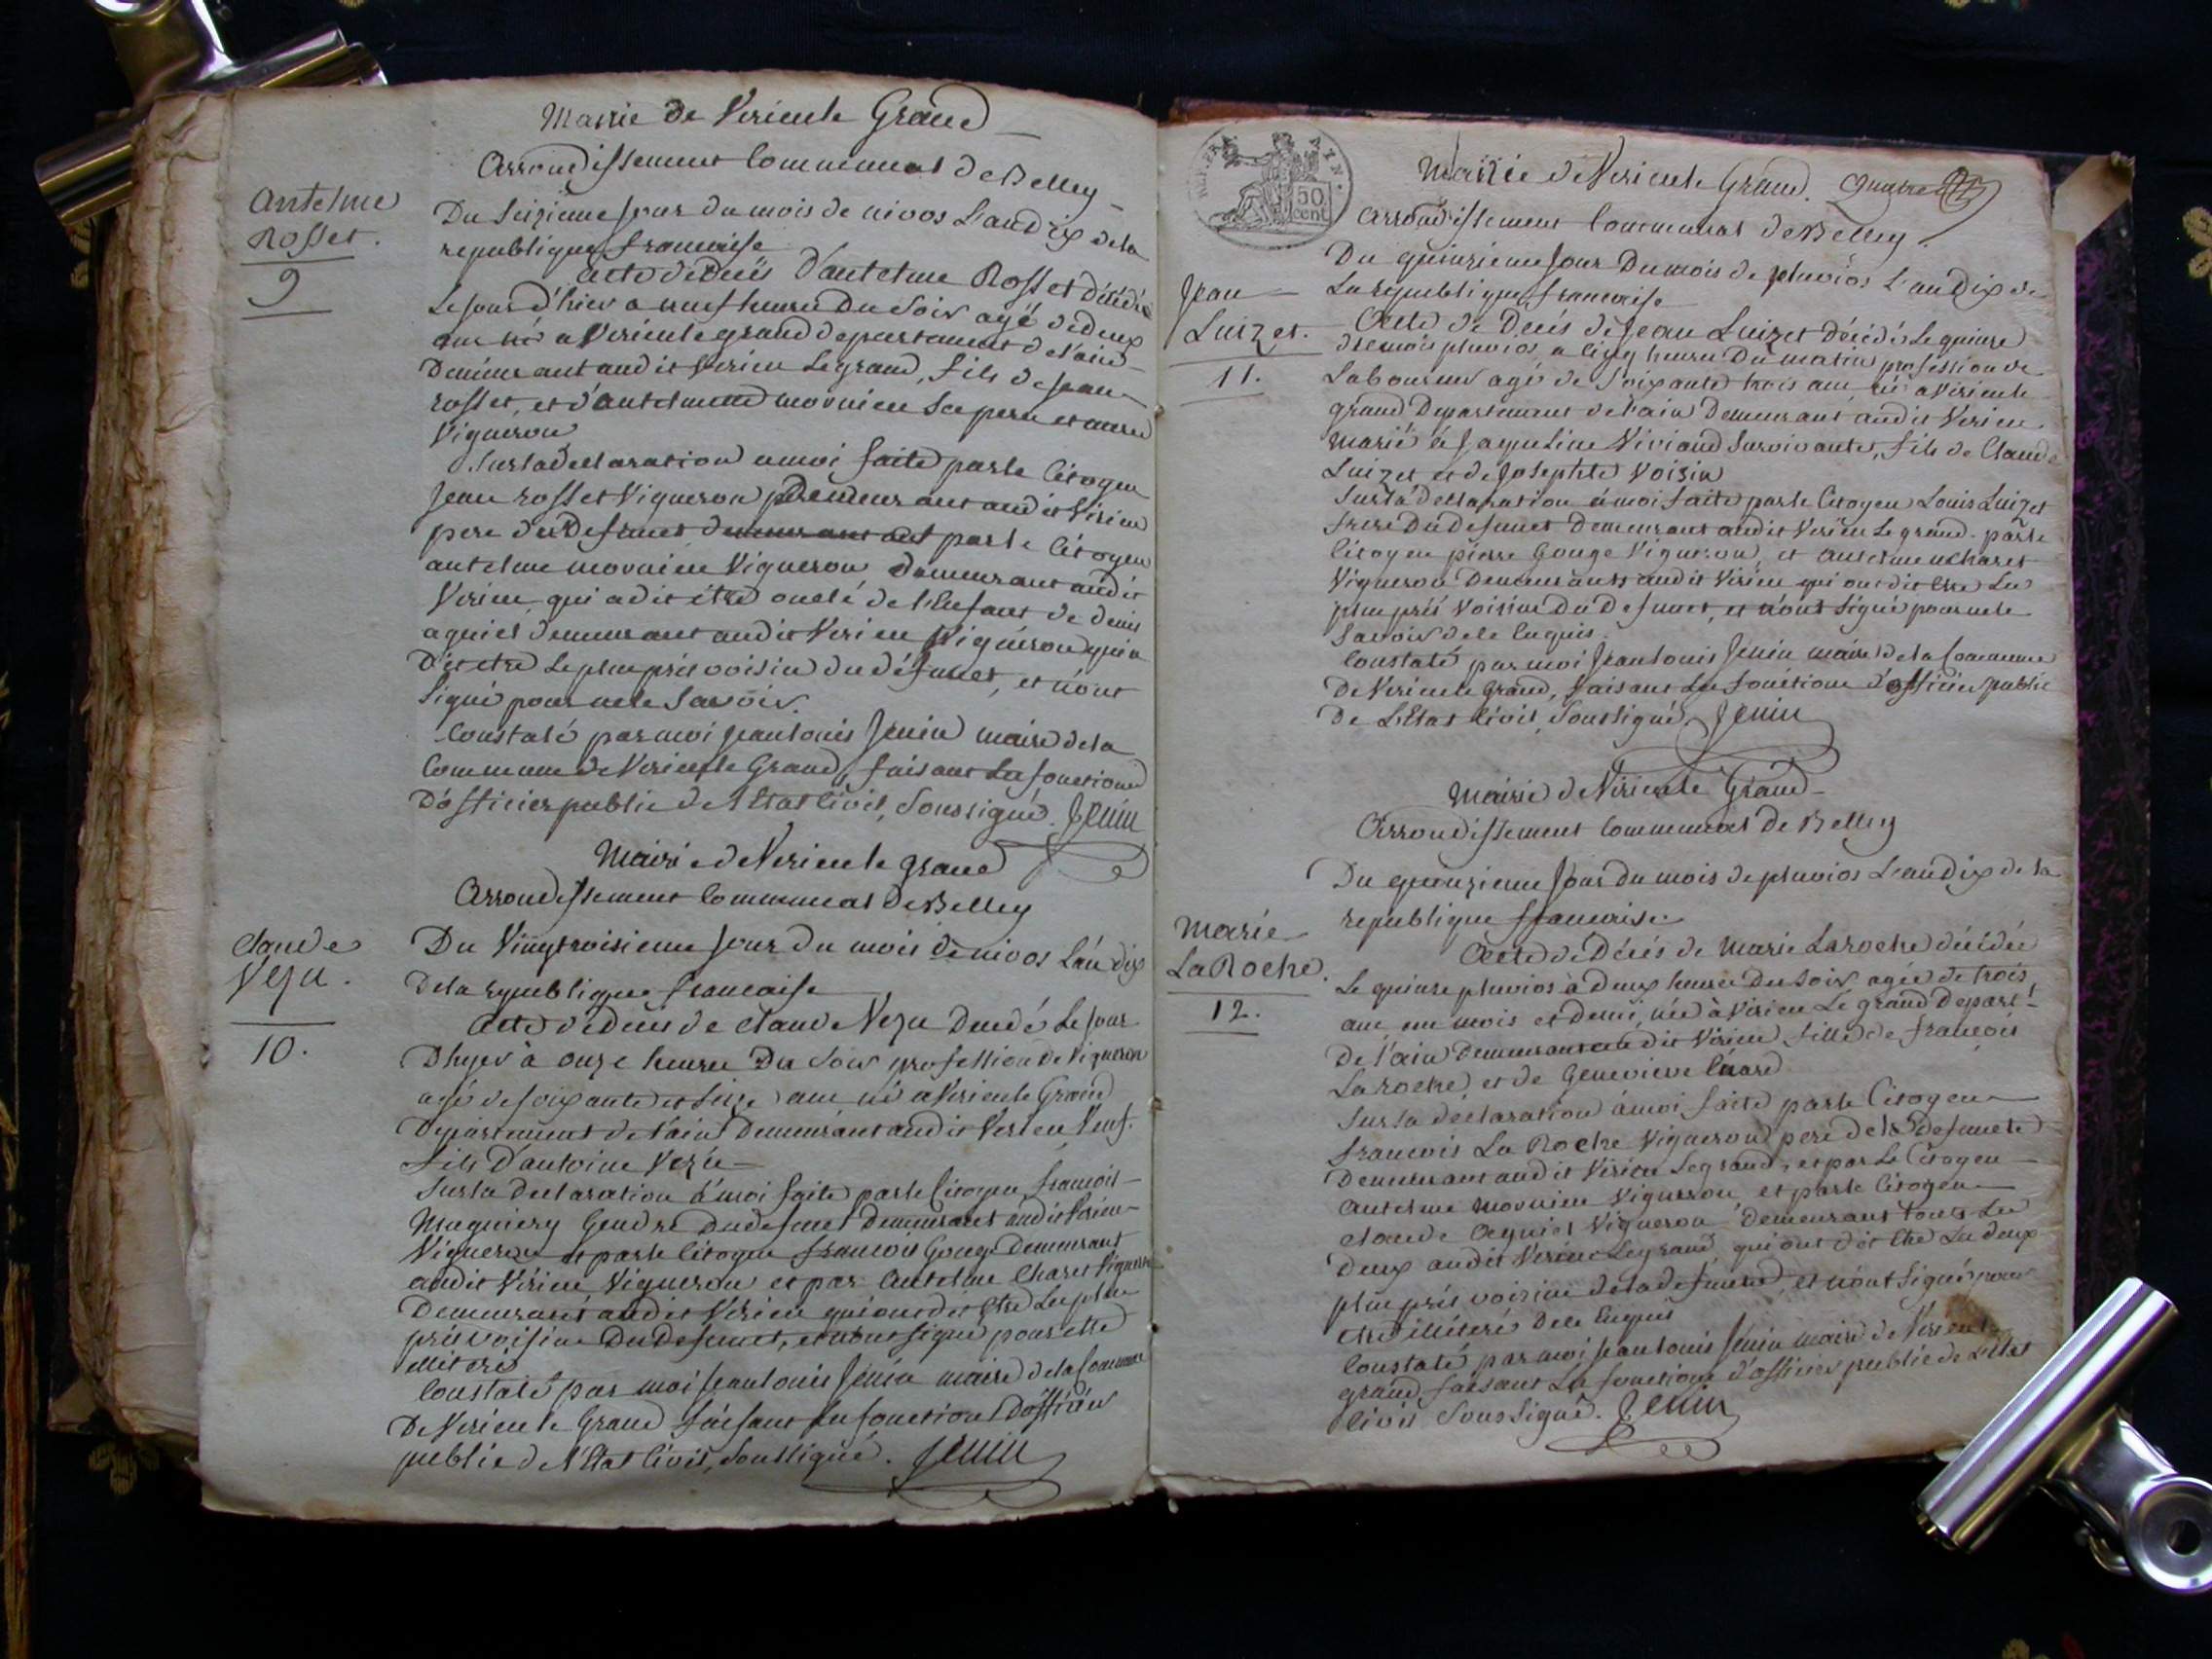 Mairie de Virieu le Grand
Arrondissement Communal de Belley
Antelme
Rosset.
9
Du seizieme jour du mois de nivos L'an dix de la
republique francaise
acte de décés d'antelme Rosset décédé
Le jour d'hier a neuf heures du soir agé de deux
ans né a Virieu le grand departement de l'ain
Demeurant audit Virieu Legrand, fils de jean
rosset, et d'antelmette mornieu ses pere et mere
Vigneron
Sur la declaration a moi faite par le Citoyen
Jean rosset Vigneron Demeurant audit Virieu
pere du defunct par le Citoyen
antelme mornieu Vigneron Demeurant audit
Virieu qui a dit être oncle de l'Enfant de denis
aguiet demeurant audit Virieu Vigneron qui a
dit etre Le plus prés voisin du défunct, et n'ont
signé pour ne le savoir.
Constaté par moi jean louis Jenin maire de la
Commune de Virieu le Grand, faisant Les fonctions
d'officier public de l'Etat Civil, soussigné. Jenin
Mairie de Virieu le grand
Arrondissement Communal de Belley
Claude
Vezu.
10.
Du Vingtroisieme jour du mois de nivos L'an dix
de la republique francaise
acte de décés de claude Vezu Decedé Le jour
D'hyer à onze heures Du Soir profession de Vigneron
agé de soixante et seize ans né a Virieu le Grand
Departement de l'ain Demeurant audit Virieu Veuf.
fils D'antoine Vezu
Sur la declaration à moi faite par le Citoyen francois
Gendre du defunct Demeurant audit Virieu
Vigneron et par le Citoyen francois Gouge Demeurant
audit Virieu Vigneron et par Antelme Charet Vigneron
Demeurants audit Virieu qui ont dit Etre Les plus
prés voisins Du Defunct, et n'ont signé pour etre
illiteré
Constaté par moi jean louis Jenin maire de la Commune
De Virieu le Grand faisant les fonctions D'officier
public de l'Etat Civil, soussigné. Jenin
REP. FRA. AYN.
50
cent
Mairie de Virieu le Grand. quatre
Arrondissement Communal de Belley.
Jean
Luizet.
11.
Du quinzieme jour Du mois de pluvios L'an Dix de
La republique francaise
Acte de Decés de Jean Luizet Décédé Le quinze
du mois pluvios, a cinq heures Du matin profession de
Laboureur agé de soixante trois ans, né a Virieu le
grand Departement de l'ain Demeurant audit Virieu
marié à Jaqueline Viviand survivante, fils de Claude
Luizet et de Josephte Voisin
Sur la declaration à moi faite par le Citoyen Louis Luizet
frere Du defunct Demeurant audit Virieu Le grand. par le
Citoyen pierre Gouge Vigneron, et Antelme Charet
Vigneron Demeurants audit Virieu qui ont dit etre Les
plus prés Voisins Du Defunct, et n'ont signé pour ne le
savoir de ce Enquis.
Constaté par moi Jean louis Jenin maire de la Commune
De Virieu le Grand, faisant Les fonctions d'officier public
De L'Etat Civil soussigné, Jenin
Mairie de Virieu le Grand
Arrondissement Communal De Belley
Marie
LaRoche.
12.
Du quinzieme jour du mois de pluvios L'an dix de la
republique francaise
Acte de Décés de Marie Laroche décédée
Le quinze pluvios à Deux heures Du Soir agée de trois
ans un mois et demi, née à Virieu Le grand Depart.t
De l'ain Demeurant audit Virieu fille de francois
La roche et de Genevieve
Sur la déclaration à moi faite par le Citoyen
francois La Roche Vigneron pere de la Defuncte
Demeurant audit Virieu Legrand, et par Le Citoyen
Antelme mornieu Vigneron, et par le Citoyen
claude Aguiet Vigneron Demeurant tous Les
Deux audit Virieu Legrand, qui ont dit Etre Les deux
plus prés voisins de la defuncte, et n'ont signé pour
etre illiteré De ce Enquis
Constaté par moi jean louis Jenin maire de Virieu le
grand, faisant Les fonctions d'officier public de L'Etat
Civil soussigné. Jenin